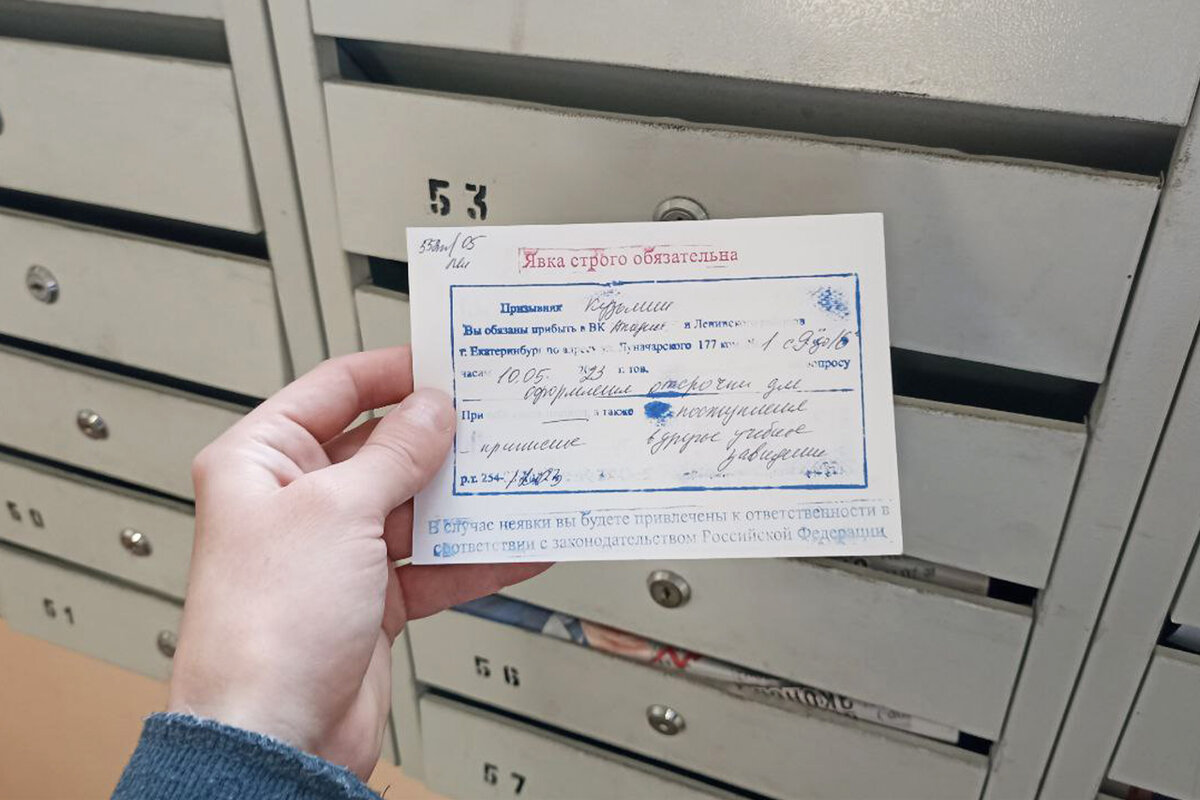 53
Явка строго обязательна
Призывник Кузьмин
Вы обязаны прибыть в ВК и Ленинского районов
г. Екатеринбург по адресу ул. Луначарского 177 ком. № 1 с 9 до 16
часа 10.05. 2023 г. вопросу
оформления отсрочки для
При а также поступления
приписное в другое учебное
заведение
р.т. 254-
В случае неявки вы будете привлечены к ответственности в
соответствии с законодательством Российской Федерации
50
51
56
57